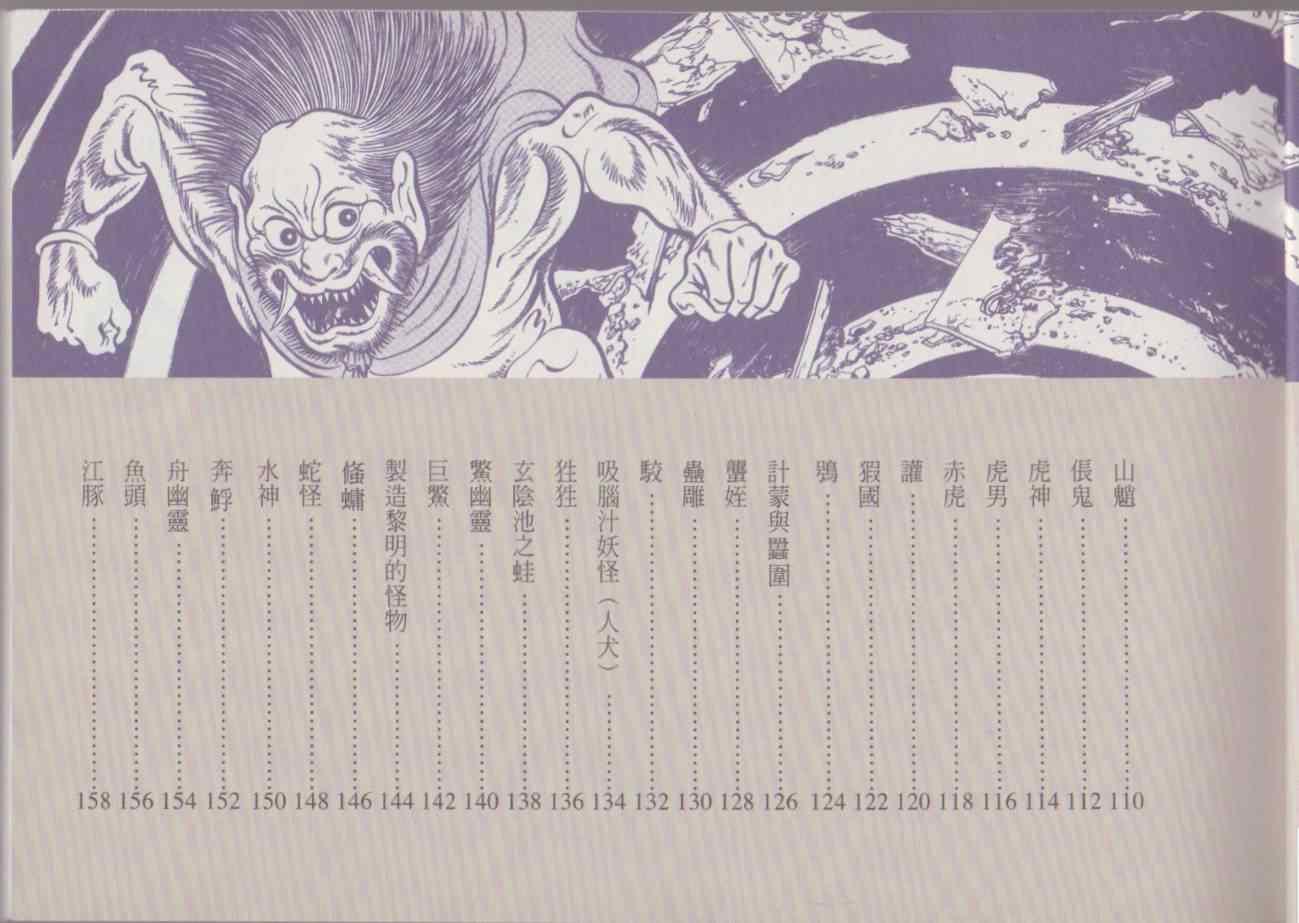 山魈……110
倀鬼……112
虎神……114
虎男……116
赤虎……118
讙……120
猳國……122
鴞……124
計蒙與䰠圍……126
蠪姪……128
蠱雕……130
駮……132
吸腦汁妖怪（人犬）……134
狌狌……136
玄陰池之蛙……138
鱉幽靈……140
巨鱉……142
製造黎明的怪物……144
鯈䗤……146
蛇怪……148
水神……150
奔䱐……152
舟幽靈……154
魚頭……156
江豚……158